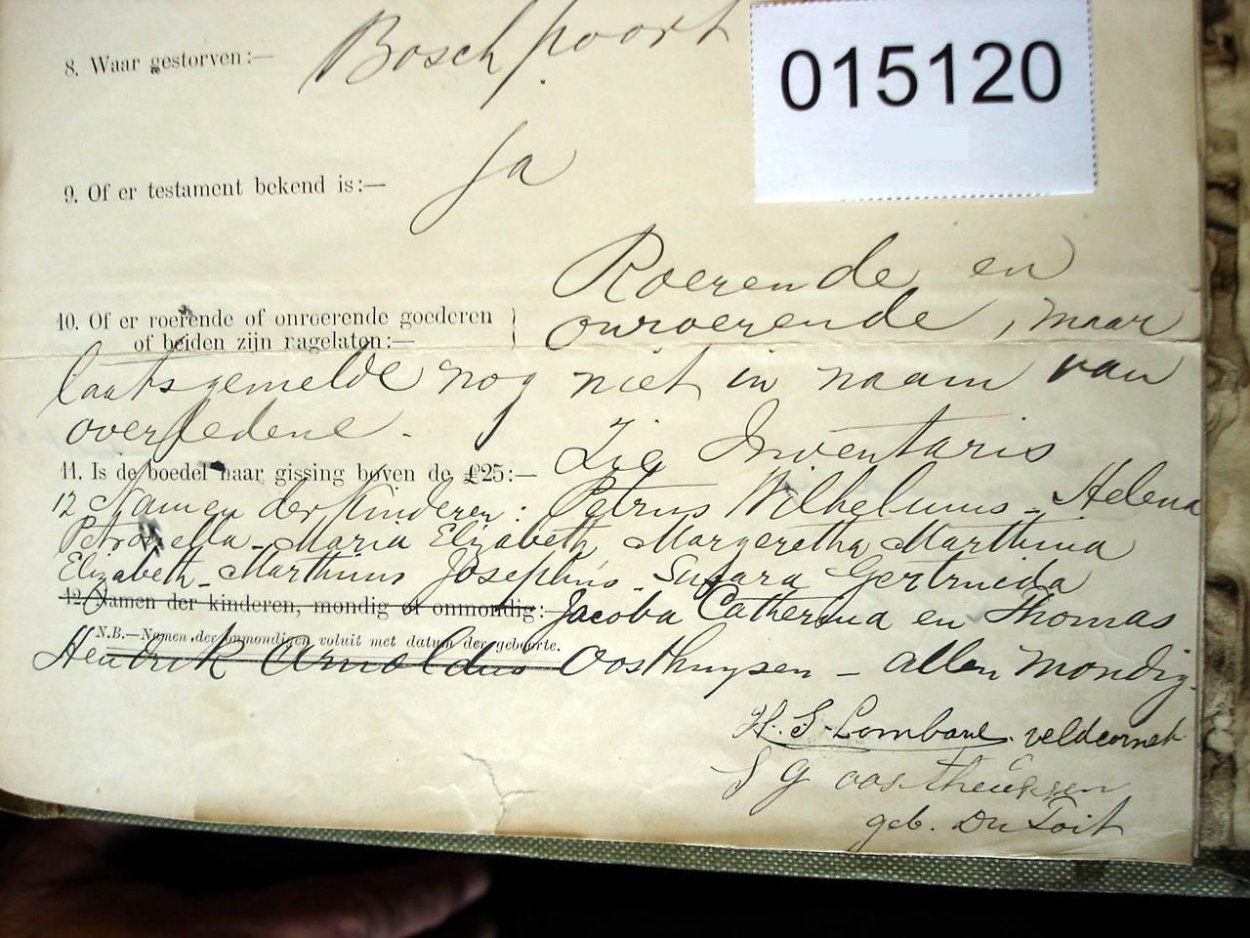 8. Waar gestorven:— Boschpoort
015120
9. Of er testament bekend is:— Ja
Roerende en
10. Of er roerende of onroerende goederen onroerende, maar
of beiden zijn nagelaten:—
laatsgemelde nog niet in naam van
overledene.
11. Is de boedel naar gissing boven de £25:— Zie Inventaris
12 Namen der Kinderen: Petrus Wilhelmus - Helena
Petronella - Maria Elizabeth Margeretha Marthina
Elizabeth - Marthinus Josephus - Susara Gertruida
12. Namen der kinderen, mondig of onmondig:— Jacoba Catherina en Thomas
N.B.—Namen der onmondigen voluit met datum der geboorte.
Hendrik Arnoldus Oosthuysen - allen mondig.
H. S. Lombard. veldcornet
S G oostheuysen
geb. Du Toit